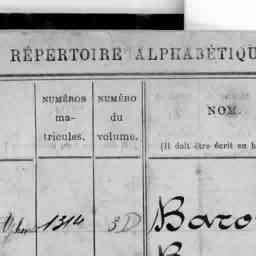 RÉPERTOIRE ALPHABÉTIQU
NUMÉROS
ma-
tricules.
NUMÉRO
du
volume.
NOM.
(Il doit être écrit en b
1314 3D Baro